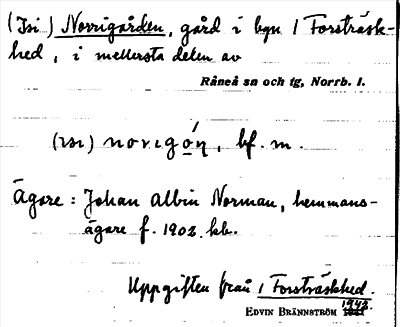 (Isi) Norrigården, gård i byn 1 Forsträsk-
hed, i mellersta delen av
Råneå sn och tg, Norrb. l.
(ɪsɪ) norɪgo̱ń, bf. m.
Ägare: Johan Albin Norman, hemmans-
ägare f. 1902. kb.
Uppgiften från 1 Forsträskhed.
1942.
EDVIN BRÄNNSTRÖM